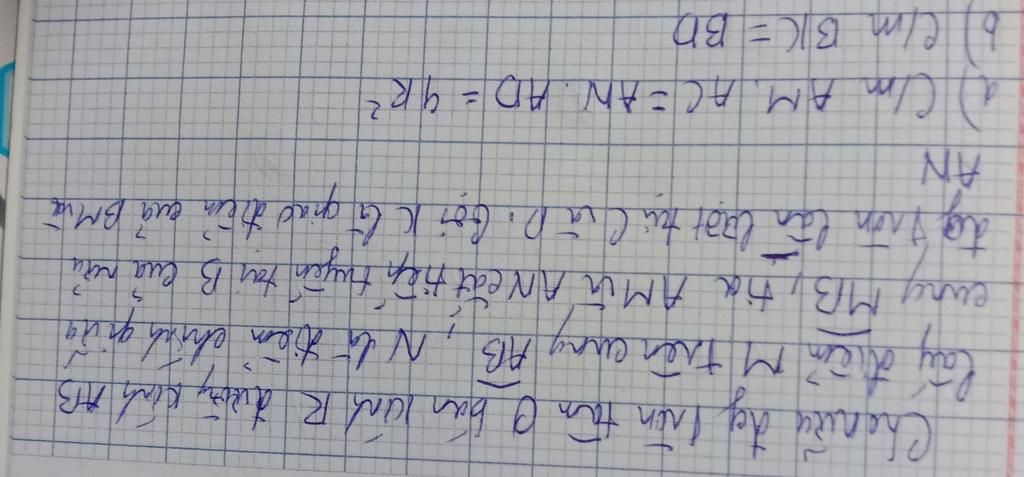 Cho nửa đg tròn tâm O bán kính R đường kính AB
lấy điểm M trên cung AB, N là điểm chính giữa
cung MB, tia AM và AN cắt tiếp tuyến tại B của nửa
đg tròn lần lượt tại C và D. Gọi K là giao điểm của BM và
AN
a) C/m AM. AC = AN. AD = 4R²
b) C/m BK = BD